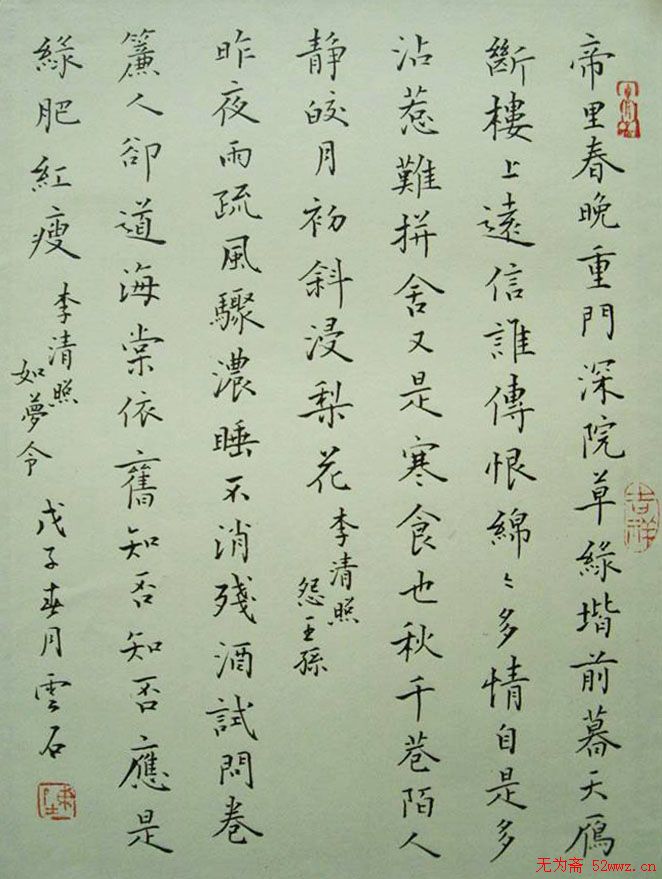 帝里春晚重門深院草綠堦前暮天鴈
斷樓上遠信誰傳恨綿〻多情自是多
沾惹難拼舍又是寒食也秋千巷陌人
靜皎月初斜浸梨花 李清照
怨王孫
昨夜雨疏風驟濃睡不消殘酒試問卷
簾人卻道海棠依舊知否知否應是
綠肥紅瘦 李清照
如夢令
戊子春月雲石
吉祥
无为斋 52wwz.cn